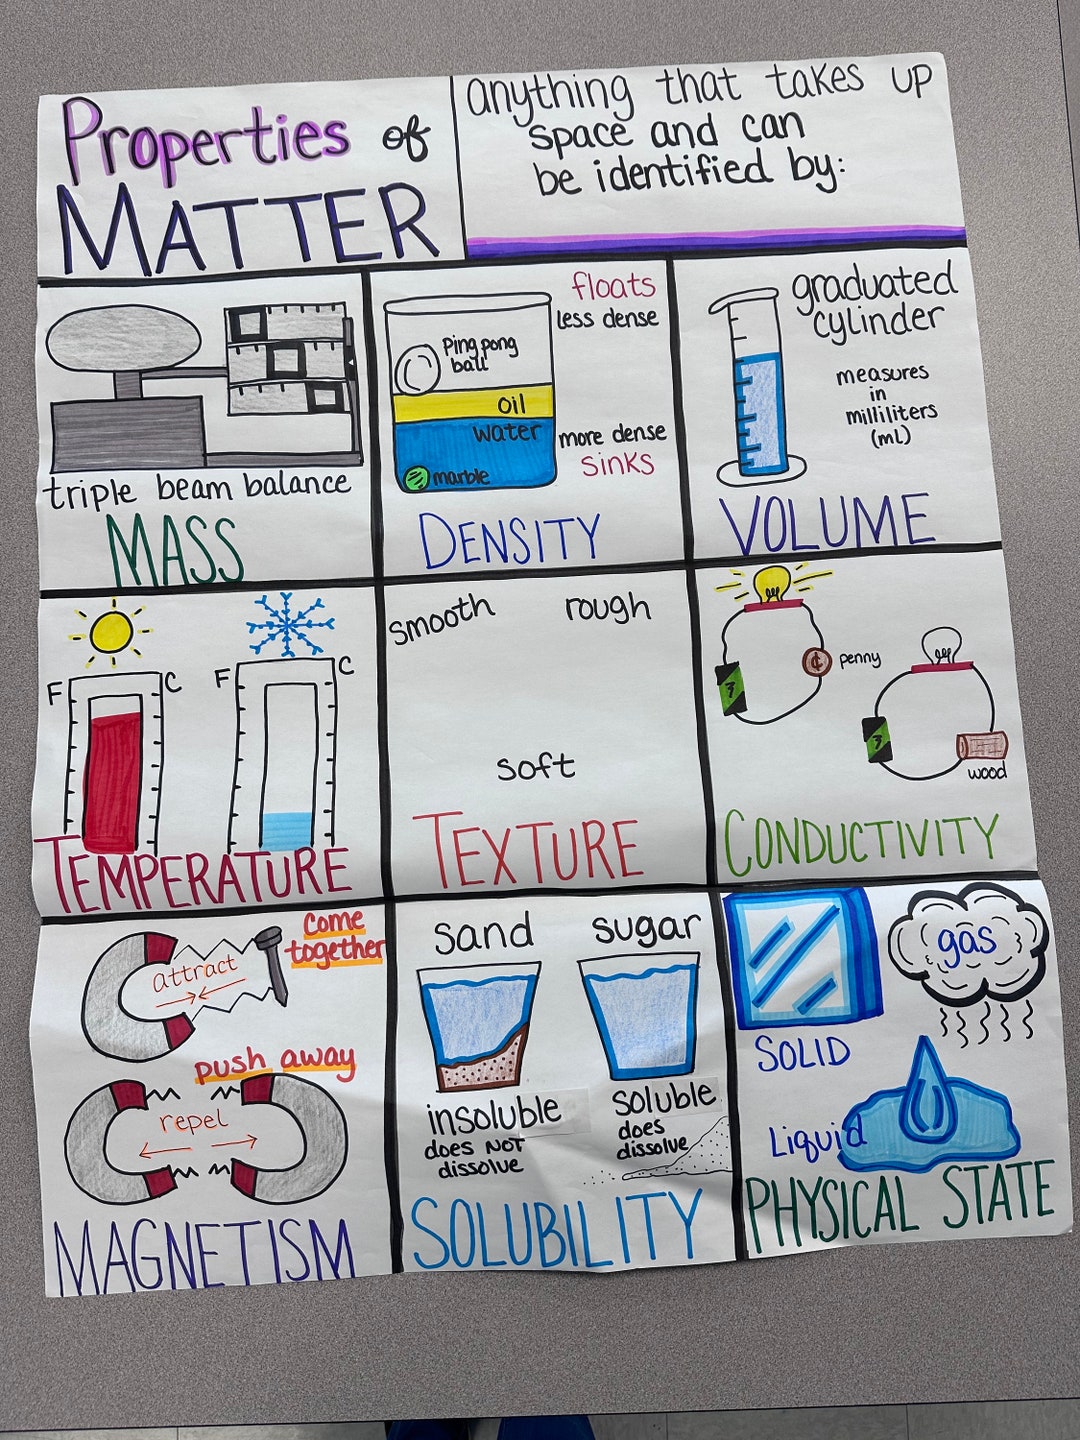 Properties of
MATTER
anything that takes up
space and can
be identified by:
triple beam balance
MASS
floats
less dense
Ping pong
ball
oil
water
marble
more dense
sinks
DENSITY
graduated
cylinder
measures
in
milliliters
(mL)
VOLUME
F C
F C
TEMPERATURE
smooth rough
soft
TEXTURE
¢ penny
wood
CONDUCTIVITY
come
together
attract
push away
repel
MAGNETISM
sand sugar
insoluble
does NOT
dissolve
soluble
does
dissolve
SOLUBILITY
gas
SOLID
Liquid
PHYSICAL STATE